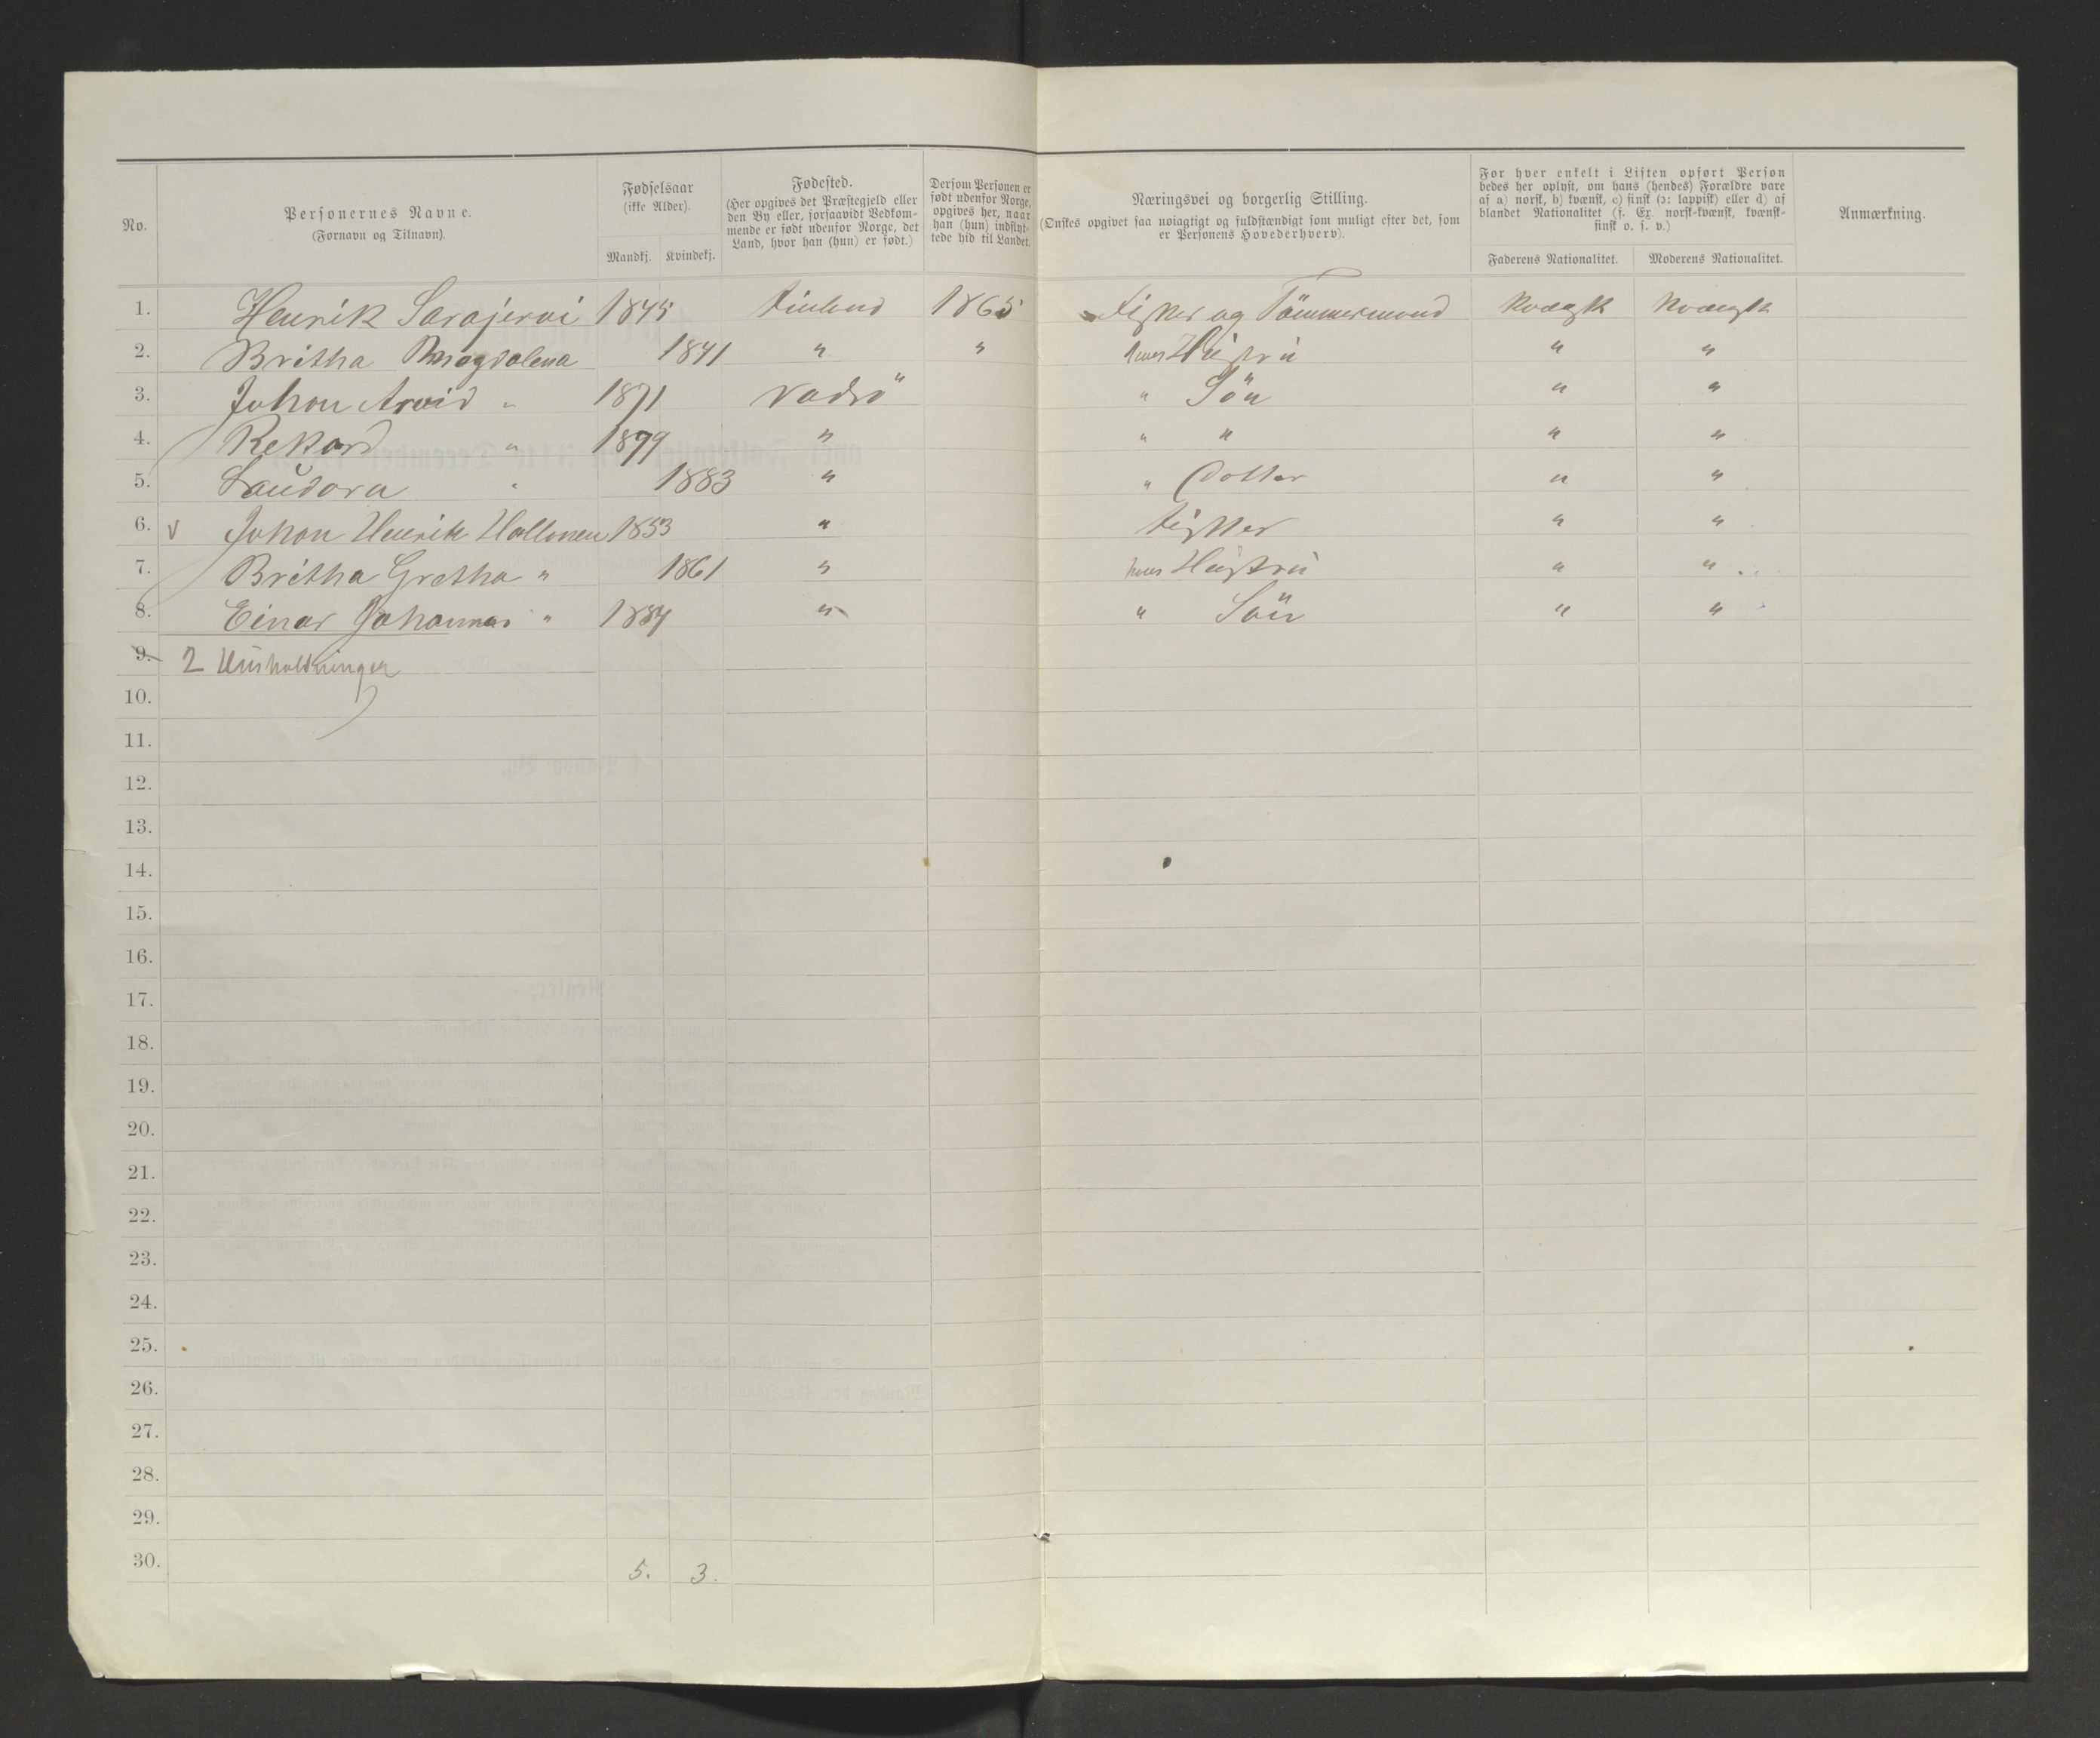 No.
Personernes Navne.
(Fornavn og Tilnavn).
Fødselsaar
(ikke Alder).
Mandkj. Kvindekj.
Fødested.
(Her opgives det Præstegjeld eller
den By eller, forsaavidt Vedkom-
mende er født udenfor Norge, det
Land, hvor han (hun) er født.)
Dersom Personen er
født udenfor Norge,
opgives her, naar
han (hun) indflyt-
tede hid til Landet.
Næringsvei og borgerlig Stilling.
(Ønskes opgivet saa nøiagtigt og fuldstændigt som muligt efter det, som
er Personens Hovederhverv).
For hver enkelt i Listen opført Person
bedes her oplyst, om hans (hendes) Forældre vare
af a) norsk, b) kvænsk, c) finsk (ɔ: lappisk) eller d) af
blandet Nationalitet (f. Ex. norsk-kvænsk, kvænsk-
finsk o. s. v.)
Faderens Nationalitet. Moderens Nationalitet.
Anmærkning.
1. Henrik Sarajervi 1845 Finland 1865 Fisker og Tömmermand kvænsk kvænsk
2. Britha Magdalena 1841 " " hans Hústrú " "
3. Johan Arvid " 1871 Vadsö " Sön " "
4. Rekard " 1879 " " " " "
5. Laúdora " 1883 " " Dotter " "
6. V Johan Henrik Hallonen 1853 " Fisker " "
7. Britha Gretha " 1861 " hans Hústrú " "
8. Einar Johannas " 1884 " " Sön " "
9. 2 Húsholdninger
10.
11.
12.
13.
14.
15.
16.
17.
18.
19.
20.
21.
22.
23.
24.
25.
26.
27.
28.
29.
30.
5. 3.